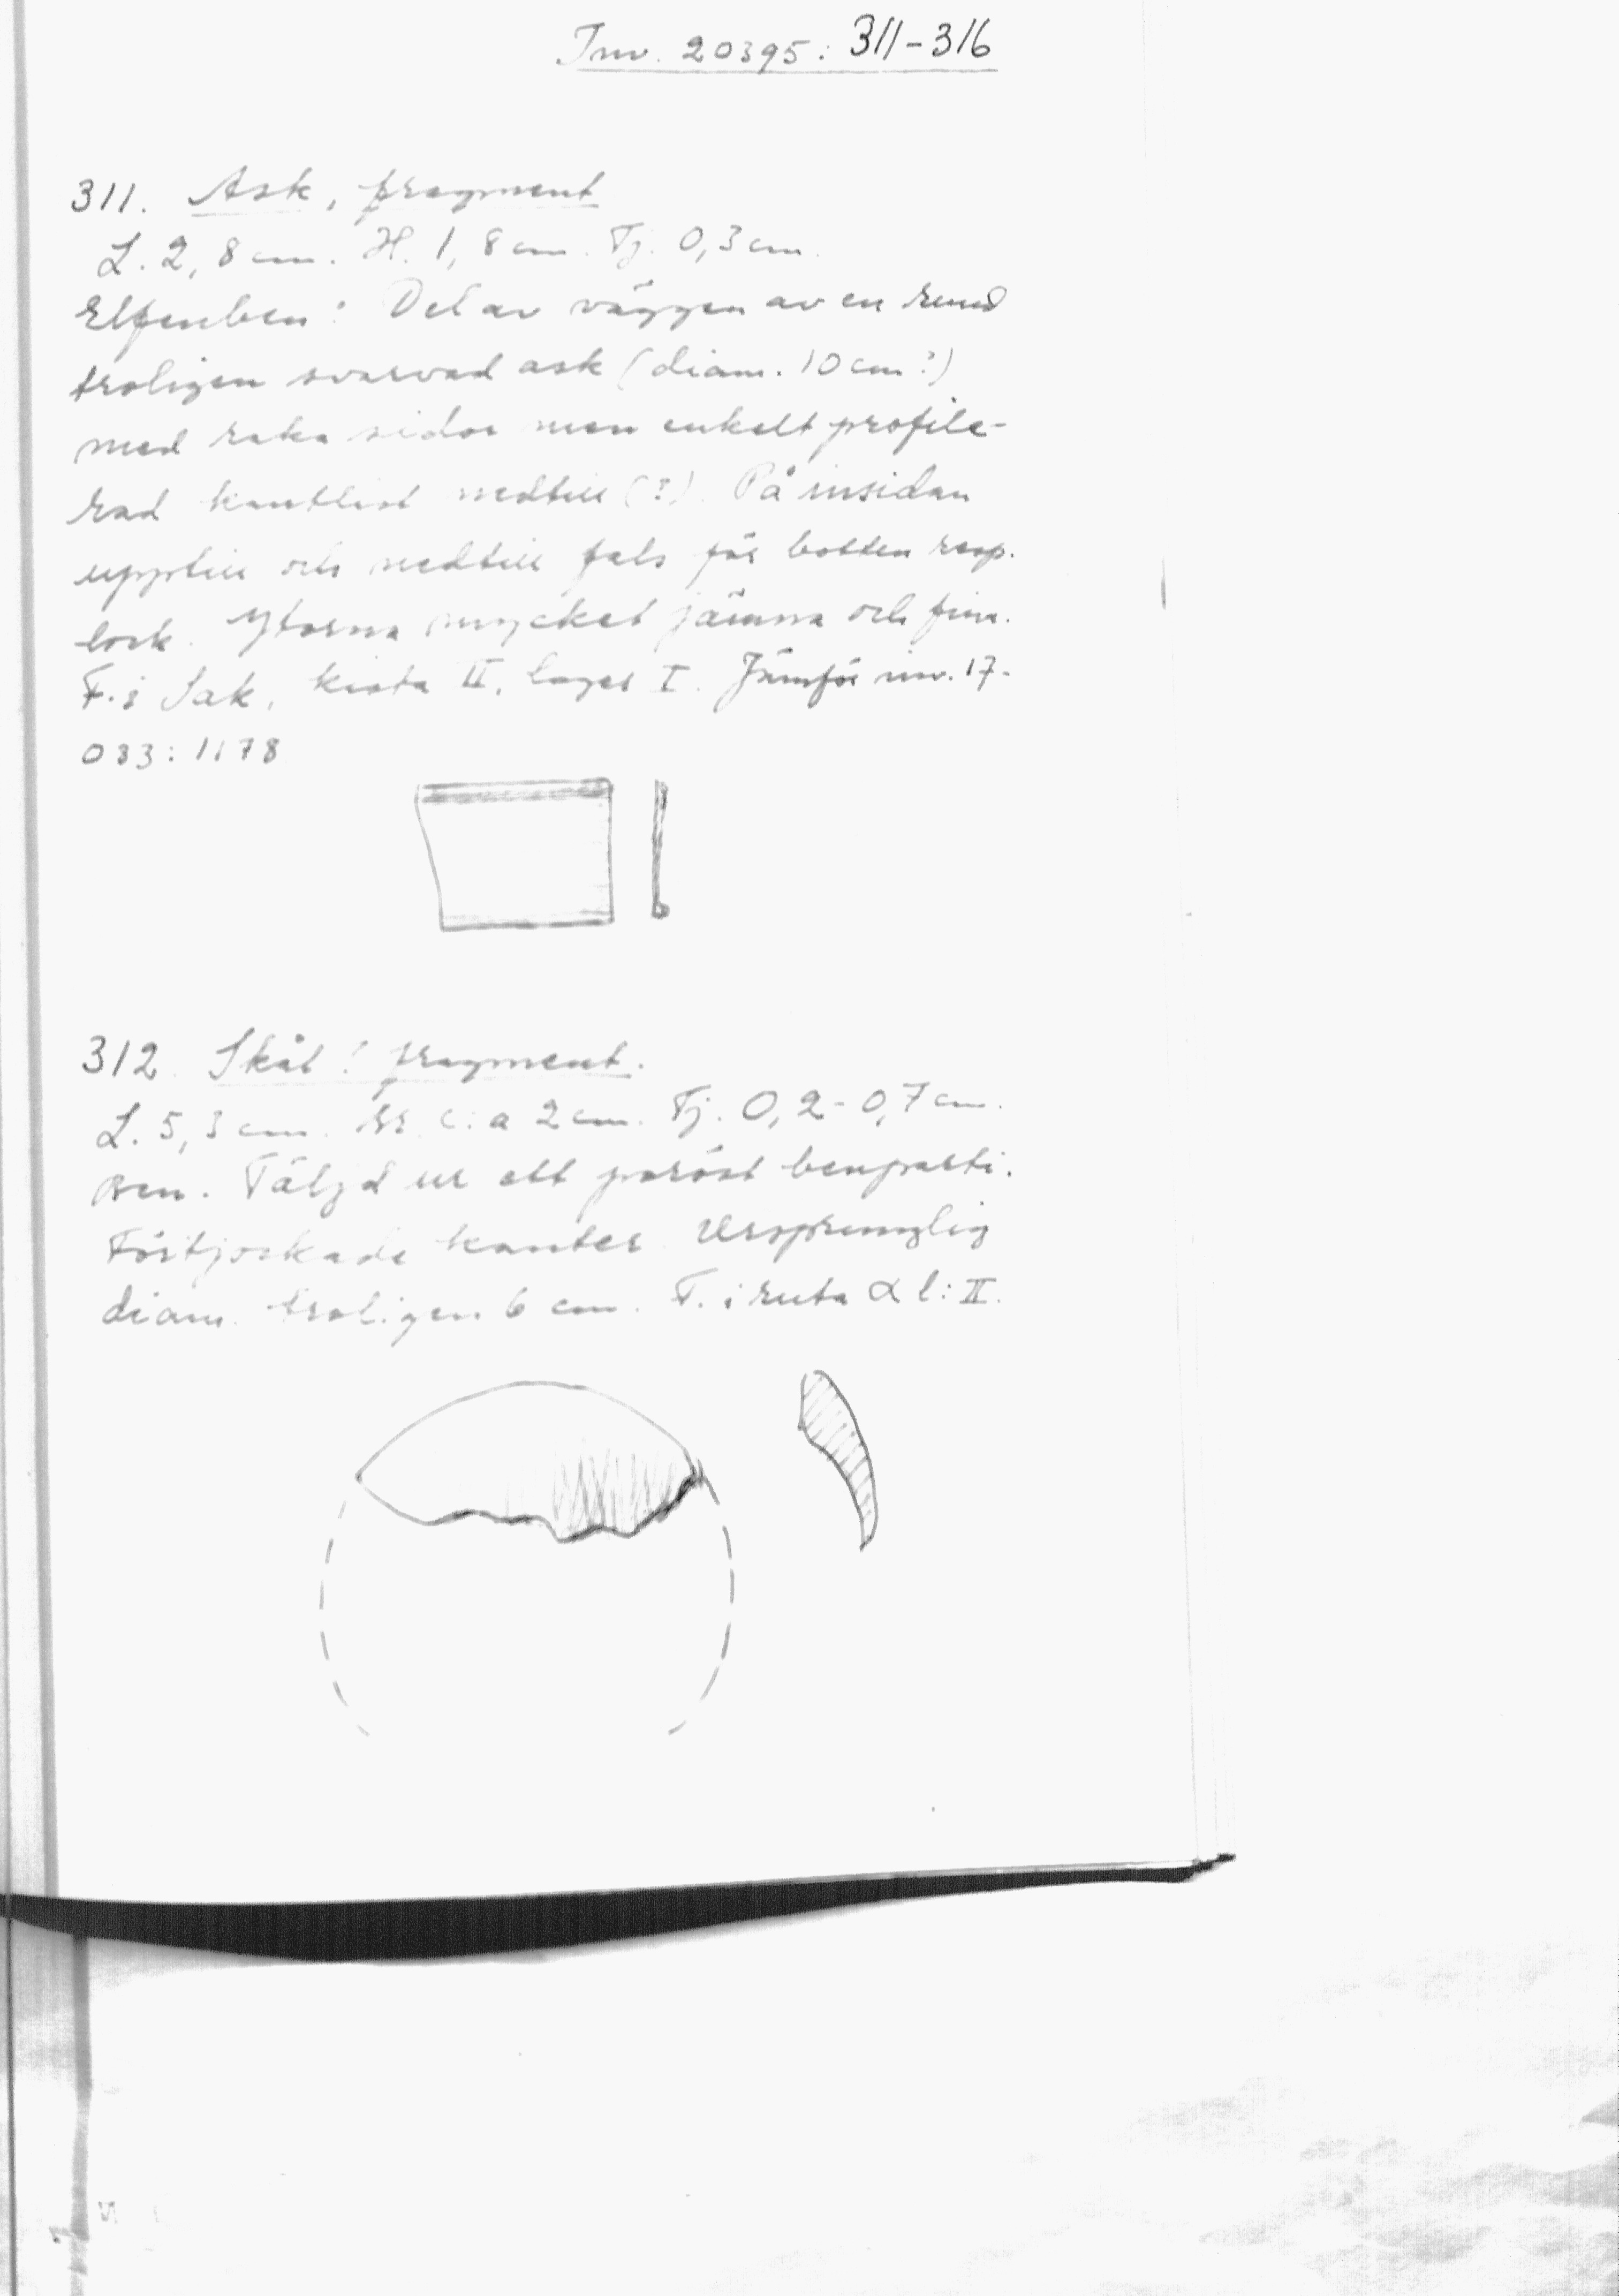 Inv. 20395: 311-316
311. Ask, fragment
L. 2,8 cm. H. 1,8 cm. Tj. 0,3 cm.
Elfenben? Del av väggen av en rund
troligen svarvad ask (diam. 10 cm?)
med raka sidor men enkelt profile-
rad kantlist nedtill (?). På insidan
upptill och nedtill fals för botten resp.
lock. Ytorna mycket jämna och fina.
F. i Sak, kista II, lager I. Jämför inv. 17-
083: 1178
312. Skål? fragment.
L. 5,3 cm. Br. c:a 2 cm. Tj. 0,2-0,7 cm.
Ben. Täljd ur ett poröst benparti.
Förtjockade kanter. Ursprunglig
diam. troligen 6 cm. F. i ruta α l: II.